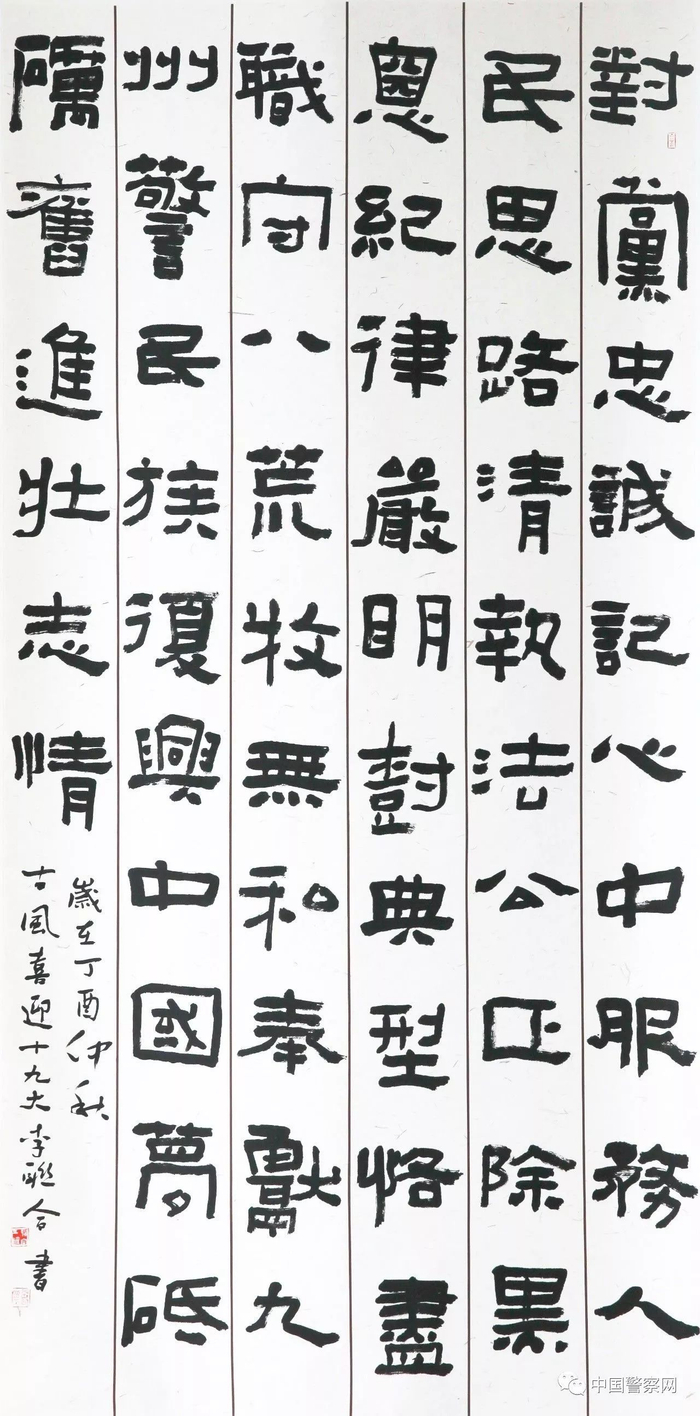 對黨忠誠記心中服務人
民思路清執法公正除黑
惡紀律嚴明尌典型恪盡
職守八荒牧無私奉獻九
州警民族復興中國夢砥
礪奮進壯志情
歲在丁酉仲秋
古風喜迎十九大李聯合書
中国警察网